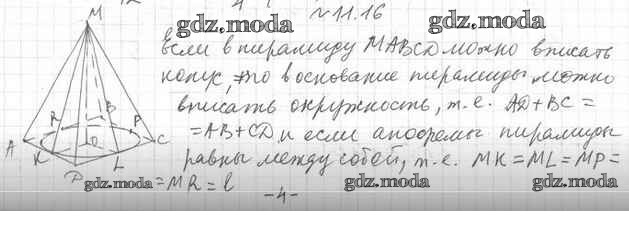 N 11.16
gdz.moda gdz.moda
M
Если в пирамиду MABCD можно вписать
конус, то в основание пирамиды можно
вписать окружность, т.е. AD+BC=
=AB+CD, и если апофемы пирамиды
равны между собой, т.е. MK=ML=MP=
=MR=l
R B P
A O C
K L
D
gdz.moda gdz.moda gdz.moda
-4-